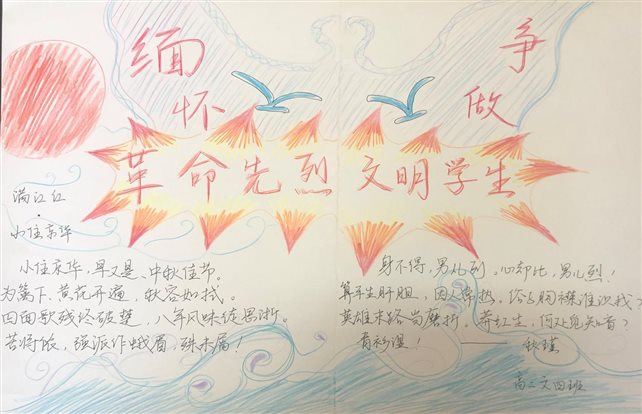 缅怀
革命先烈
争做
文明学生
满江红
·
小住京华
小住京华,早又是、中秋佳节。
为篱下、黄花开遍,秋容如拭。
四面歌残终破楚,八年风味徒思浙。
苦将侬,强派作蛾眉,殊未屑!
身不得,男儿列。心却比,男儿烈!
算平生肝胆,因人常热。俗子胸襟谁识我?
英雄末路当磨折。莽红尘,何处觅知音?
青衫湿!
——秋瑾
高二文四班